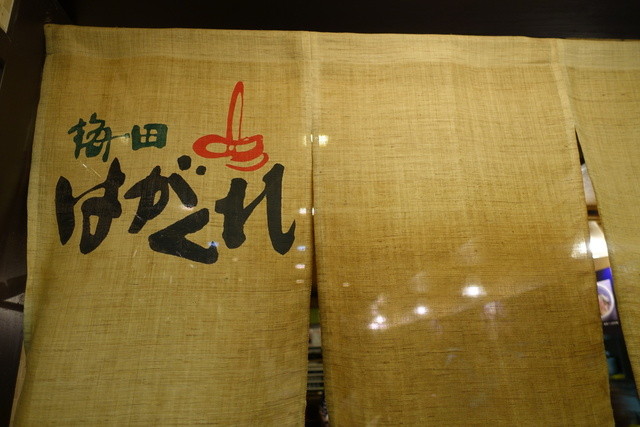 梅田
はがくれ